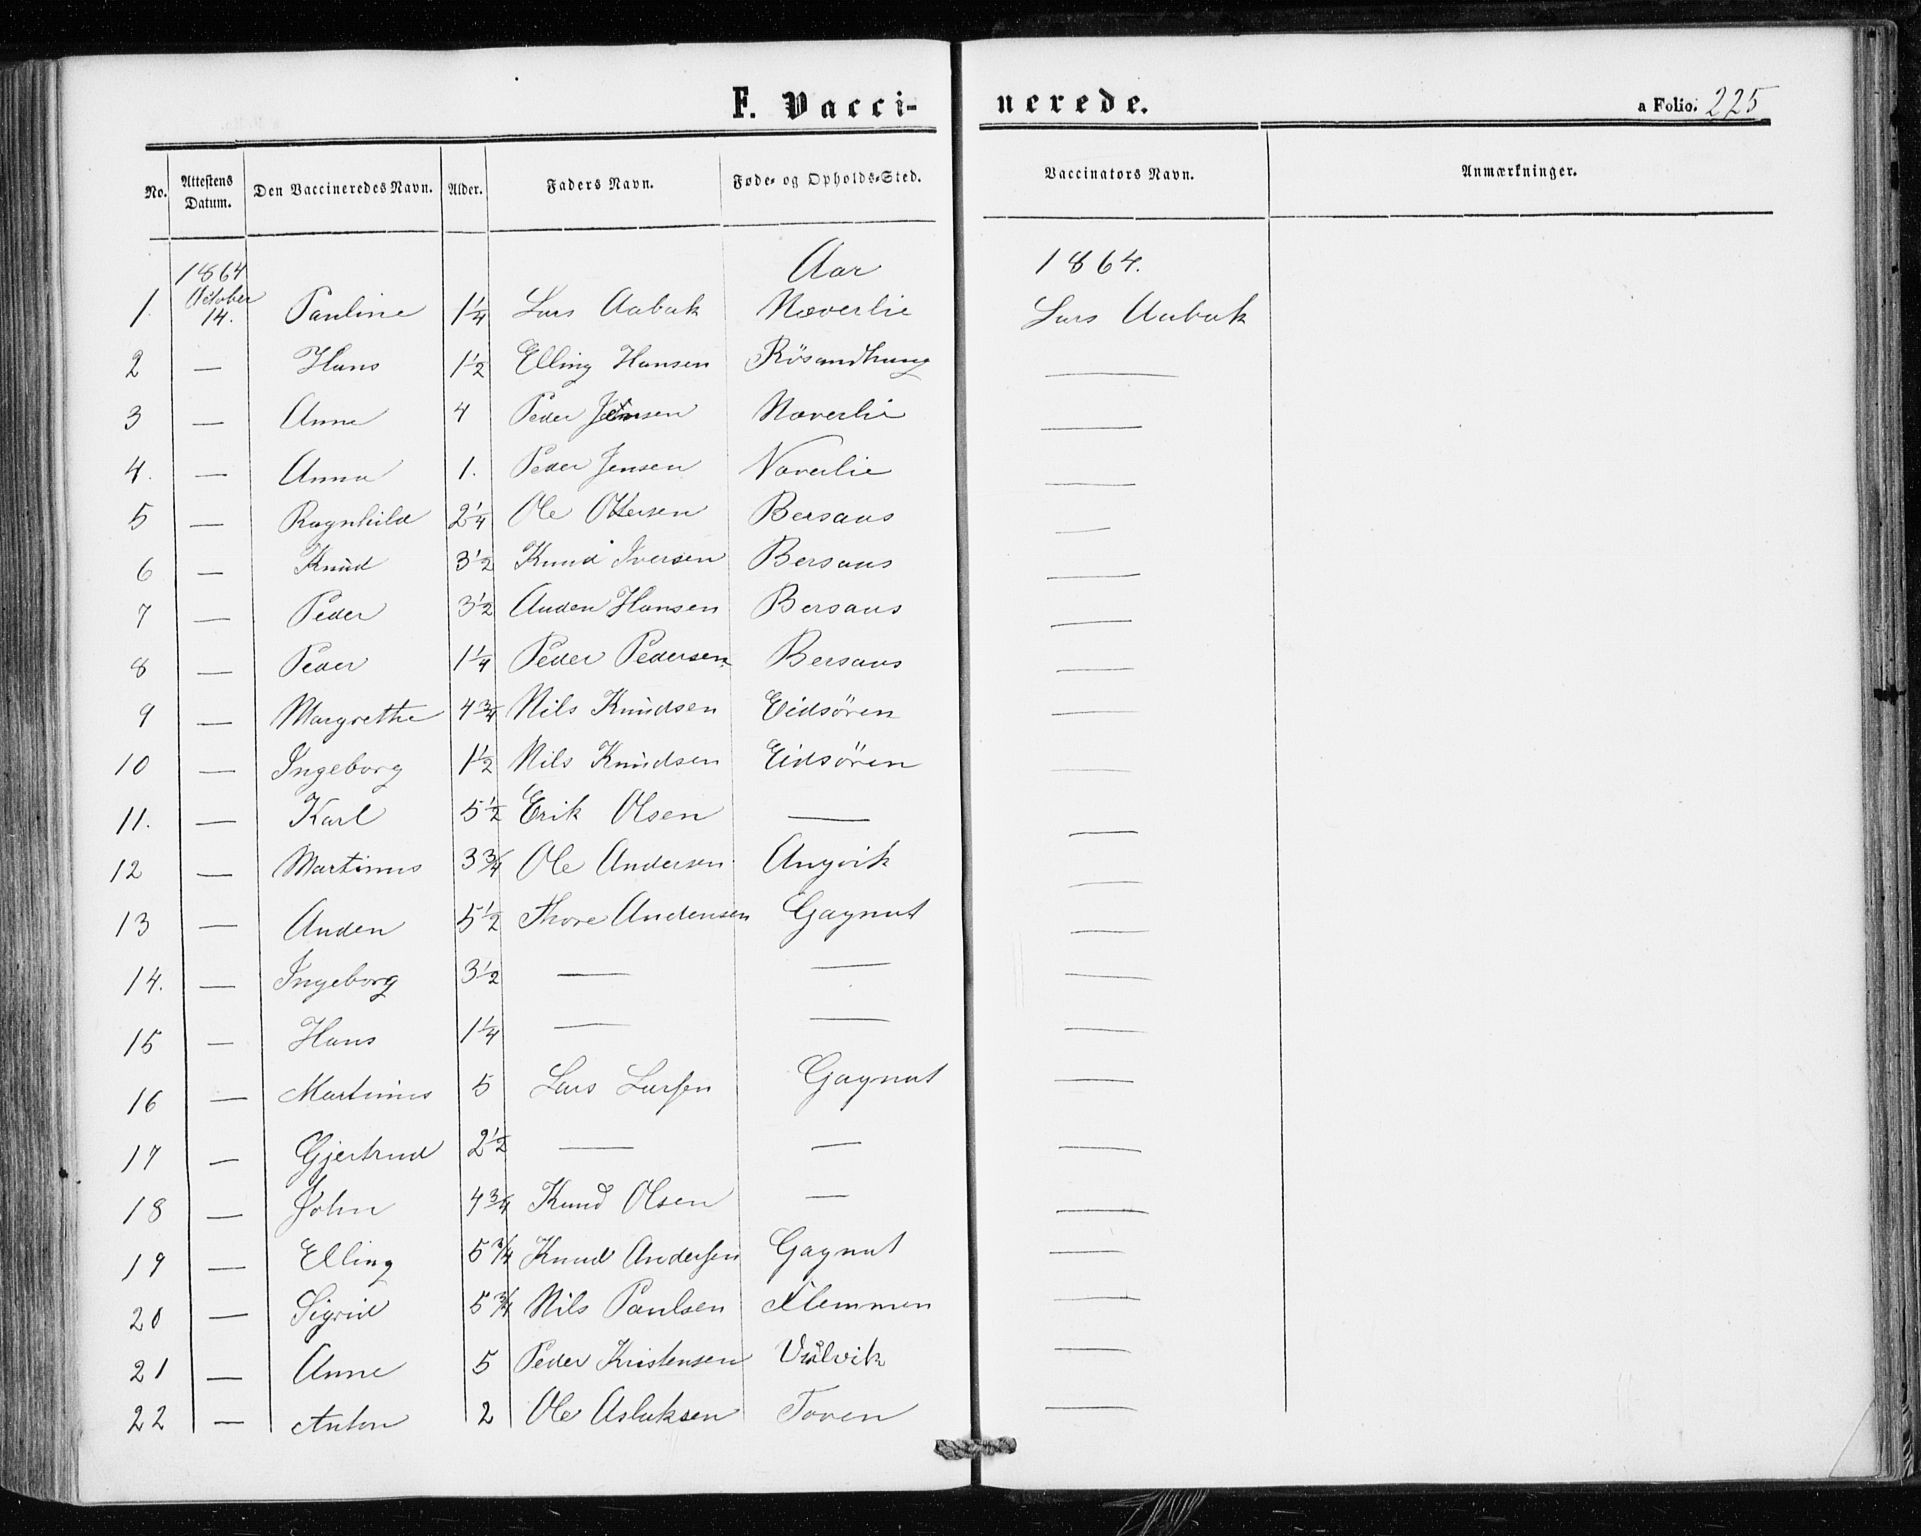 F. Vaccinerede. a Folio. 225
No. Attestens Datum. Den Vaccineredes Navn. Alder. Faders Navn. Føde- og Opholds-Sted. Vaccinators Navn. Anmærkninger.
1864 Aar 1864.
1. October 14. Pauline 1 1/4 Lars Aabak Nœverlie Lars Aabak
2 — Hans 1 1/2 Elling Hansen Rösandhaug —
3 — Anne 4 Peder Jensen Nœverlie —
4. — Anna 1. Peder Jensen Nœverlie —
5 — Ragnhild 2 1/4 Ole Ottersen Bersaas —
6 — Knud 3 1/2 Knud Iversen Bersaas —
7 — Peder 3 1/2 Auden Hansen Bersaas —
8 — Peder 1 1/4 Peder Pedersen Bersaas —
9 — Margrethe 4 3/4 Nils Knudsen Eidsören —
10 — Ingeborg 1 1/2 Nils Knudsen Eidsören —
11. — Karl 5 1/2 Erik Olsen — —
12 — Martinus 3 3/4 Ole Andersen Angvik —
13 — Auden 5 1/2 Thore Audensen Gagnat —
14. — Ingeborg 3 1/2 — — —
15 — Hans 1 1/4 — — —
16 — Martinus 5 Lars Larsen Gagnat —
17 — Gjertrud 2 1/2 — — —
18 — John 4 3/4 Knud Olsen — —
19 — Elling 5 3/4 Knud Andersen Gagnat —
20 — Sigrid 5 3/4 Nils Paulsen Flemmen —
21 — Anne 5 Peder Kristensen Vaalvik —
22 — Anton 2 Ole Aslaksen Toven —